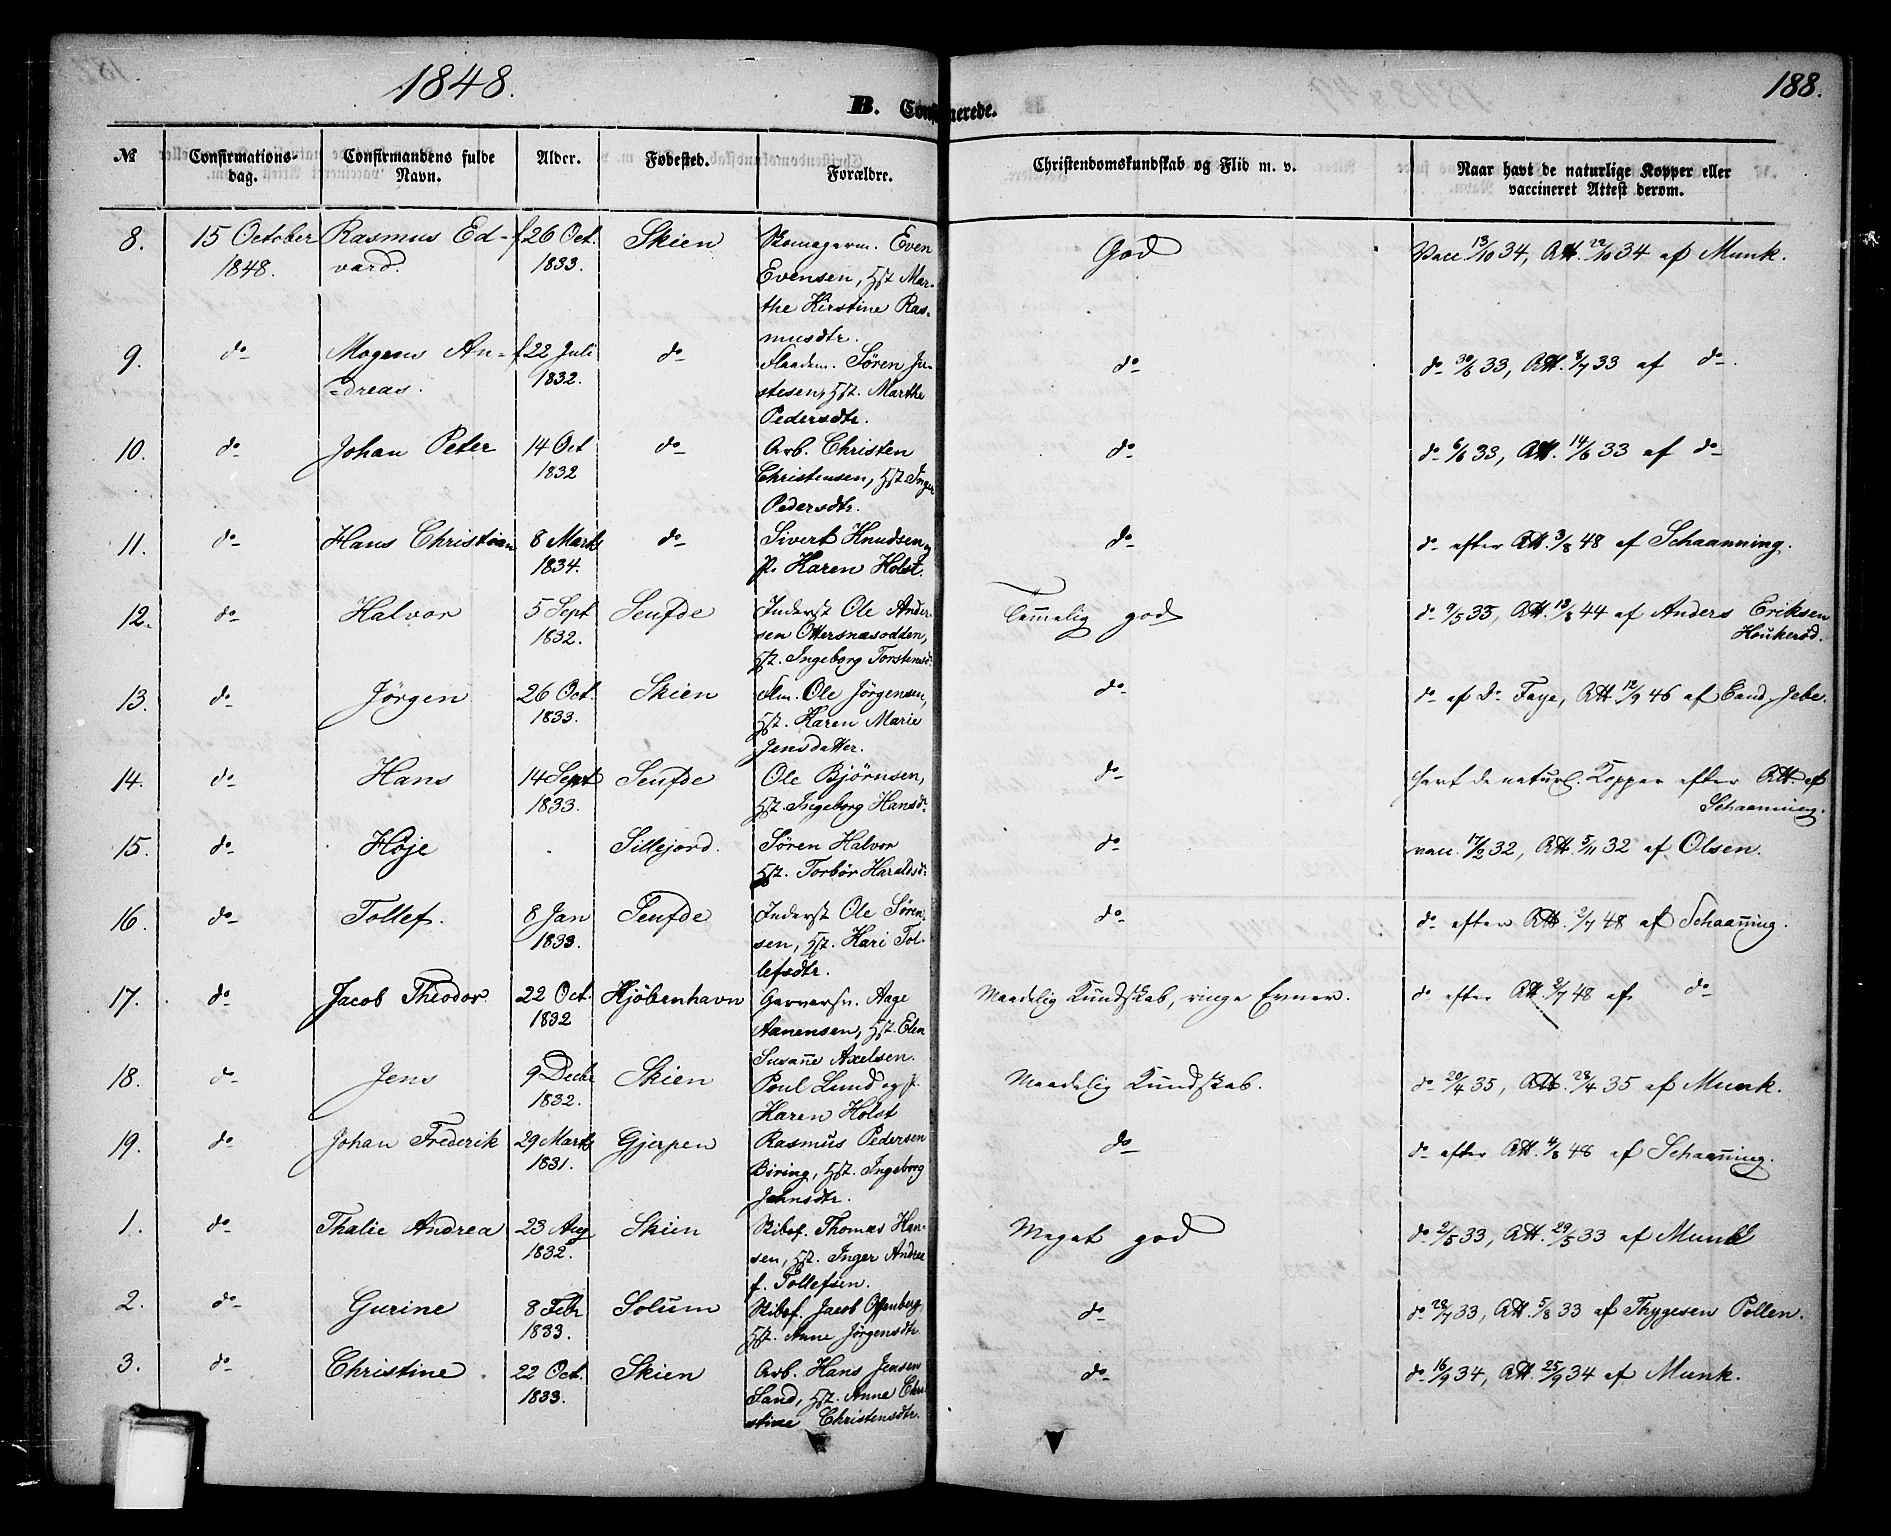 1848.
188.
B. Confirmerede.
№ Confirmations-dag. Confirmandens fulde Navn. Alder. Fødested. Forældre. Christendomskundskab og Flid m. v. Naar havt de naturlige Kopper eller vaccineret Attest derom.
8. 15 October Rasmus Ed- f 26 Oct. Skien Skomagerm. Even God Vacc. 13/10 34, Att. 22/10 34 af Munk.
1848. vard. 1833. Evensen, Hst. Mar-
the Kirstine Ras-
musdtr.
9. do Mogens An- f 22 Juli do Flaadem. Søren Ju- do do 30/6 33, Att. 8/7 33 af do
dreas. 1832. stesen, Hst. Marthe
Pedersdtr.
10. do Johan Peter 14 Oct do Arb. Christen do do 6/6 33, Att. 14/6 33 af do
1832 Christensen, Hst. Inger
Pedersdtr.
11. do Hans Christian 8 Marts do Sivert Knudsen og do do efter Att. 3/8 48 af Schaanning.
1834. p. Karen Holst.
12. do Halvor 5 Sept Seufde Inderst Ole Ander- Temmelig god do 9/5 35, Att. 13/8 44 af Anders Eriksen
1832. sen Ottersnæsodden, Houkerød.
Hst. Ingeborg Torstensd.
13. do Jörgen 26 Oct. Skien Flm. Ole Jörgensen, do do af Dr Faye, Att. 12/9 46 af Cand. Jebe.
1833. Hst. Karen Marie
Jensdatter.
14. do Hans 14 Sept Seufde Ole Björnsen, do havt de naturl. Kopper efter Att. af
1833. Hst. Ingeborg Hansd. Schaanning.
15. do Høje Sillejord. Sören Halvor do vacc. 17/2 32, Att. 5/11 32 af Olsen.
Hst. Torbör Haraldsd.
16. do Tollef. 8 Jan Seufde Inderst Ole Sören- do do efter Att. 2/7 48 af Schaanning.
1833. sen, Hst. Kari Tol-
lefsdtr.
17. do Jacob Theodor. 22 Oct. Kjöbenhavn Garversv. Aage Maadelig Kundskab, ringe Evner. do efter Att. 2/7 48 af do
1832 Aanensen, Hst. Elen
Susanne Axelsen.
18. do Jens 9 Decbr Skien Poul Lund og p. Maadelig Kundskab. do 20/4 35, Att. 28/4 35 af Munk.
1832. Karen Holst
19. do Johan Frederik 29 Marts Gjerpen Rasmus Pedersen do do efter Att. 4/8 48 af Schaanning.
1831. Biring, Hst. Ingeborg
Jahnsdtr.
1. do Thalie Andrea 23 Aug Skien Skibsf. Thomas Han- Meget god do 2/5 33, Att. 29/5 33 af Munk
1832. sen, Hst. Inger Andrea
f. Tollefsen.
2. do Gurine 8 Febr Solum Skibsf. Jacob Offenberg, do do 28/7 33, Att. 5/8 33 af Thygesen Pollen.
1833. Hst. Anne Jörgensdtr.
3. do Christine 22 Oct. Skien Arb. Hans Jensen do do 16/9 34, Att. 25/9 34 af Munk.
1833. Sand, Hst. Anne Chri-
stine Christensdtr.